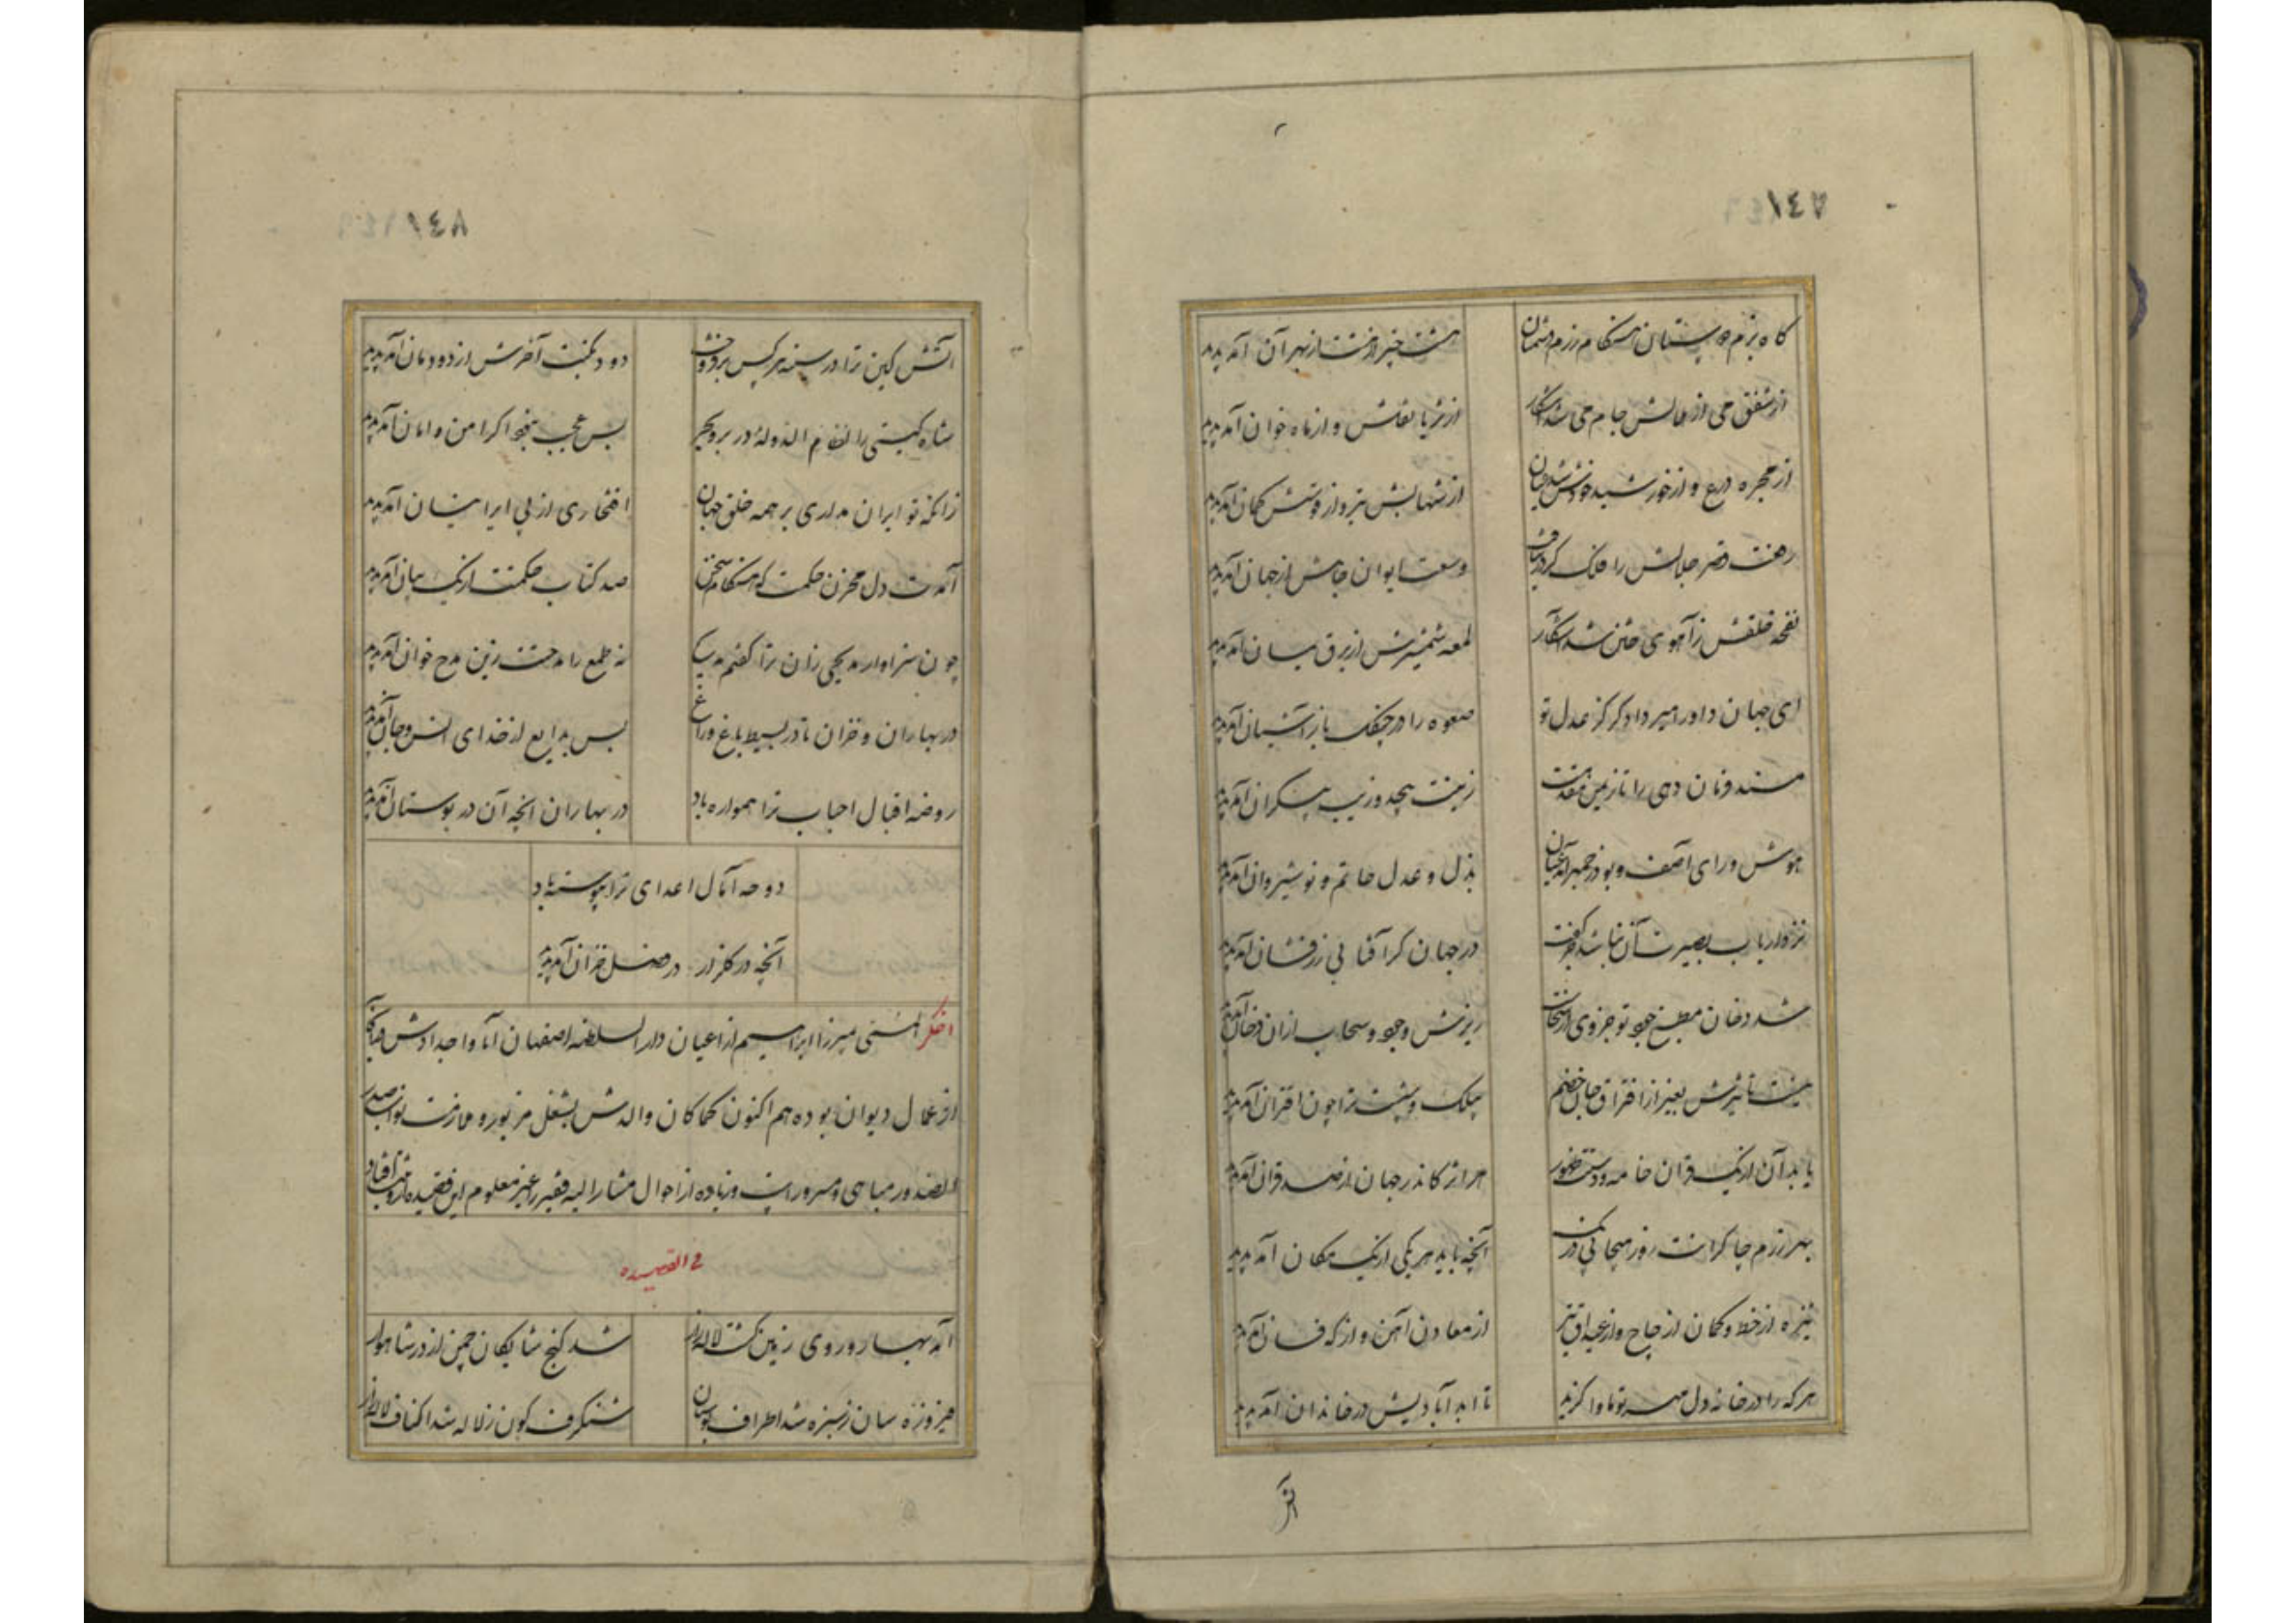 ١٤٧
گاه بزم دوستان هنگام رزم دشمنان
هشت خیر از هشت از بهر آن آمد پدید
از شفق می از هلالش جام می شد آشکار
از ثریا نقلش و از ماه خوان آمد پدید
از مجره درع و از خورشید خودش شد عیان
از شهابش تیر و از قوسش کمان آمد پدید
رفعت قصر جلالش را فلک کرد
وسعت ایوان جاهش از جهان آمد پدید
نفحه خلقش ز آهوی ختن شد آشکار
لمعه شمشیرش از برق یمان آمد پدید
ای جهان داور امیر دادگر کز عدل تو
صعوه را در چنگ باز آشیان آمد پدید
مسند فرمان دهی را تا ز یمن مقدمت
زینت بیحد و زیب بیکران آمد پدید
هوش و رای آصف و بوذرجمهر آمد عیان
بذل و عدل حاتم و نوشیروان آمد پدید
نزد ارباب بصیرت آن نباشد
در جهان گر آفتابی زرفشان آمد پدید
شد دخان مطبخ جود تو جزوی
ریزش و جود و سحاب از آن دخان آمد پدید
نیست تاثیرش بغیر از افتراق جان خصم
کلک و تیغت ترا چون اقتران آمد پدید
یابد آن از یک قران خامه و دستت ظهور
هر اثر کاندر جهان از صد قران آمد پدید
بهر رزم چاکرانت روز هیجا پی در
آنچه باید هر یکی از یک مکان آمد پدید
نیزه از خط و کمان از چاچ و از تیر
از معادن آهن و از که فسان آمد پدید
هر که را در خانه دل مهر تو ماوا گزید
تا ابد آبادیش در خاندان آمد پدید
آتش
١٤٨
آتش کین ترا در سینه هر کس برفروخت
دود نکبت آخرش از دودمان آمد پدید
شاه گیتی را نظام الدوله در
بس عجب نبود اگر امن و امان آمد پدید
زانکه تو ایران مداری بر همه خلق جهان
افتخاری از پی ایرانیان آمد پدید
آمدت دل مخزن حکمت که هنگام سخن
صد کتاب حکمتت از یک بیان آمد پدید
چون سزاوار مدیحی زان ترا گفتم مدیح
نه طمع را مدحتت زین مدح خوان آمد پدید
در بهاران و خزان تا در بسیط باغ و راغ
بس بدایع از خدای انس و جان آمد پدید
روضه اقبال احباب ترا همواره باد
در بهاران آنچه آن در بوستان آمد پدید
دوحه آمال اعدای ترا پیوسته باد
آنچه در گلزار در فصل خزان آمد پدید
اخگر المسمی میرزا ابراهیم از اعیان دارالسلطنه اصفهان آبا و اجدادش
از عمال دیوان بوده هم اکنون کماکان والدش بشغل مزبور و ملازمت نواب صدر
الصدور مباهی و مسرور است و زیاده از احوال مشارالیه فقیر را غیر معلوم این قصیده
فی القصیده
آمد بهار و روی زمین گشت لاله زار
شد گنج شایگان چمن از در شاهوار
فیروزه سان ز سبزه شد اطراف بوستان
شنگرف گون ز لاله شد اکناف لاله زار